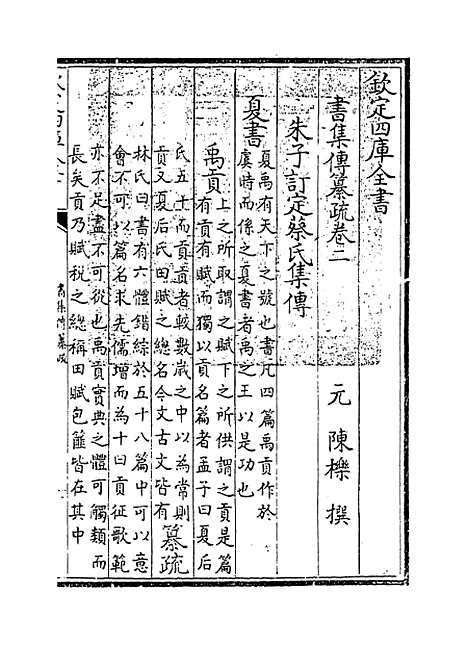 欽定四庫全書
書集傳纂疏卷二
元 陳櫟 撰
朱子訂定蔡氏集傳
夏書
夏禹有天下之號也書凡四篇禹貢作於
虞時而係之夏書者禹之王以是功也
禹貢
上之所取謂之賦下之所供謂之貢是篇
有貢有賦而獨以貢名篇者孟子曰夏后
氏五十而貢貢者較數歲之中以為常則
貢又夏后氏田賦之總名今文古文皆有
纂疏
林氏曰書有六體錯綜於五十八篇中可以意
會不可以篇名求先儒增而為十曰貢征歌範
亦不足盡不可從也禹貢實典之體可觸類而
長矣貢乃賦稅之總稱田賦包篚皆在其中
書集傳纂疏